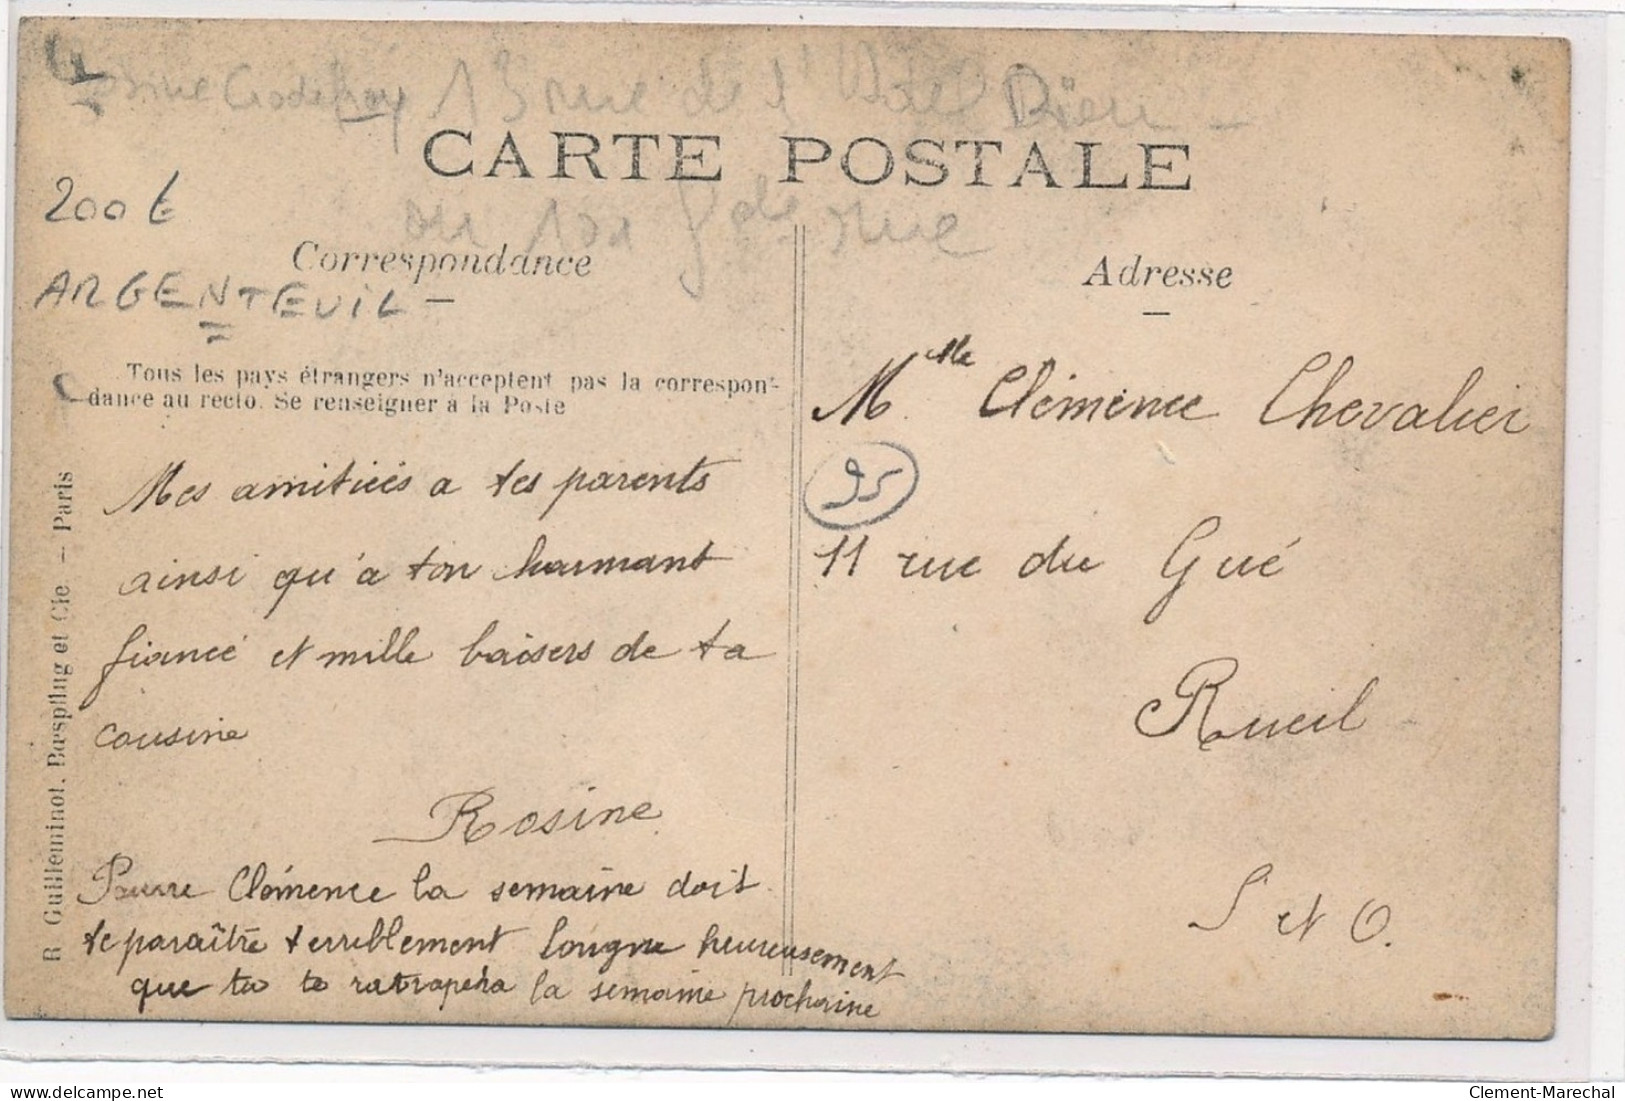 Godefroy 13 rue de l'Hotel Dieu
CARTE POSTALE
200 €
Correspondance
ARGENTEUIL
Adresse
Tous les pays étrangers n'acceptent pas la correspon-
dance au recto. Se renseigner à la Poste
Mlle Clémence Chevalier
95
11 rue du Gué
Rueil
S et O.
Mes amitiées a tes parents
ainsi qu'a ton harmant
fiancé et mille baisers de ta
cousine
Rosine
Pauvre Clémence la semaine doit
te paraître terriblement longue heureusement
que tu te ratrapera la semaine prochaine
R. Guilleminot, Bœspflug et Cie – Paris
Clement-Marechal